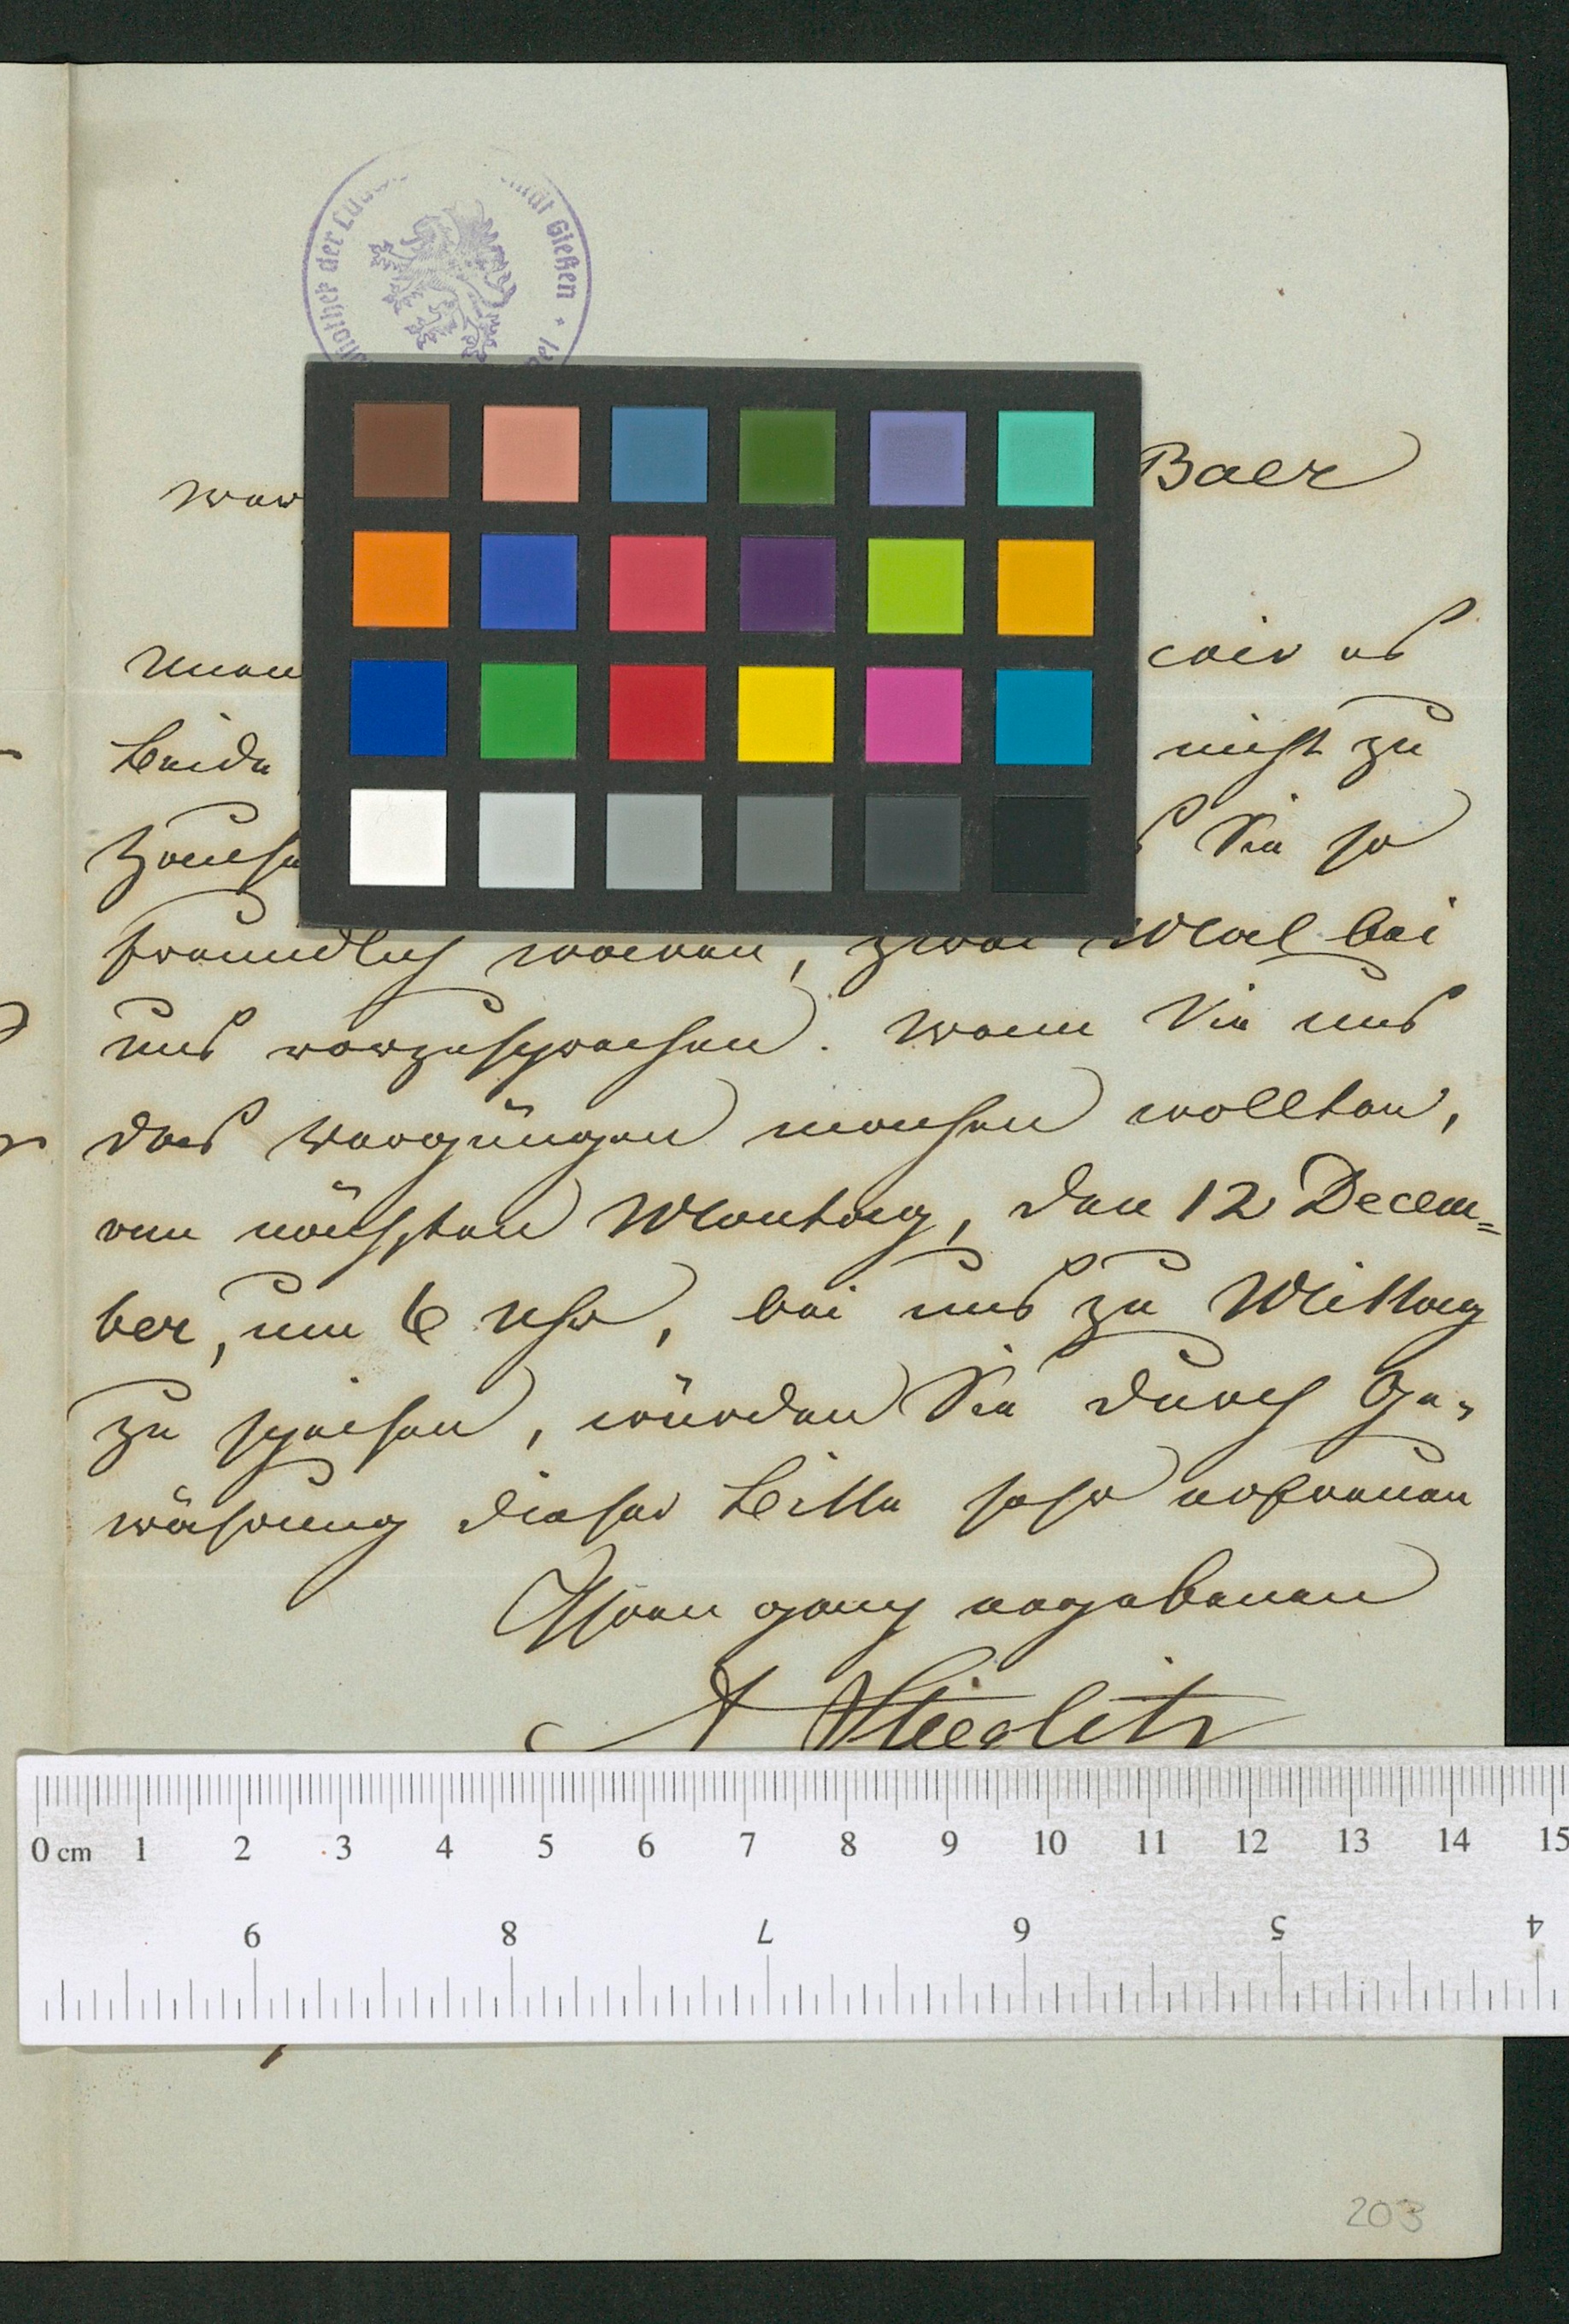 Bibliothek der Lud
ität Gießen
Baer
wir es
Beide
nicht zu
Sie so
freundlich waren, zwei Mal bei
uns vorzusprechen. Wenn Sie uns
das Vergnügen machen wollten,
am nächsten Montag, den 12 Decem=
ber, um 6 Uhr, bei uns zu Mittag
zu speisen, würden Sie durch Ge-
währung dieser Bitte sehr erfreuen
Ihren ganz ergebenen
A Stieglitz
0 cm 1 2 3 4 5 6 7 8 9 10 11 12 13 14 15
9 8 7 6 5 4
203